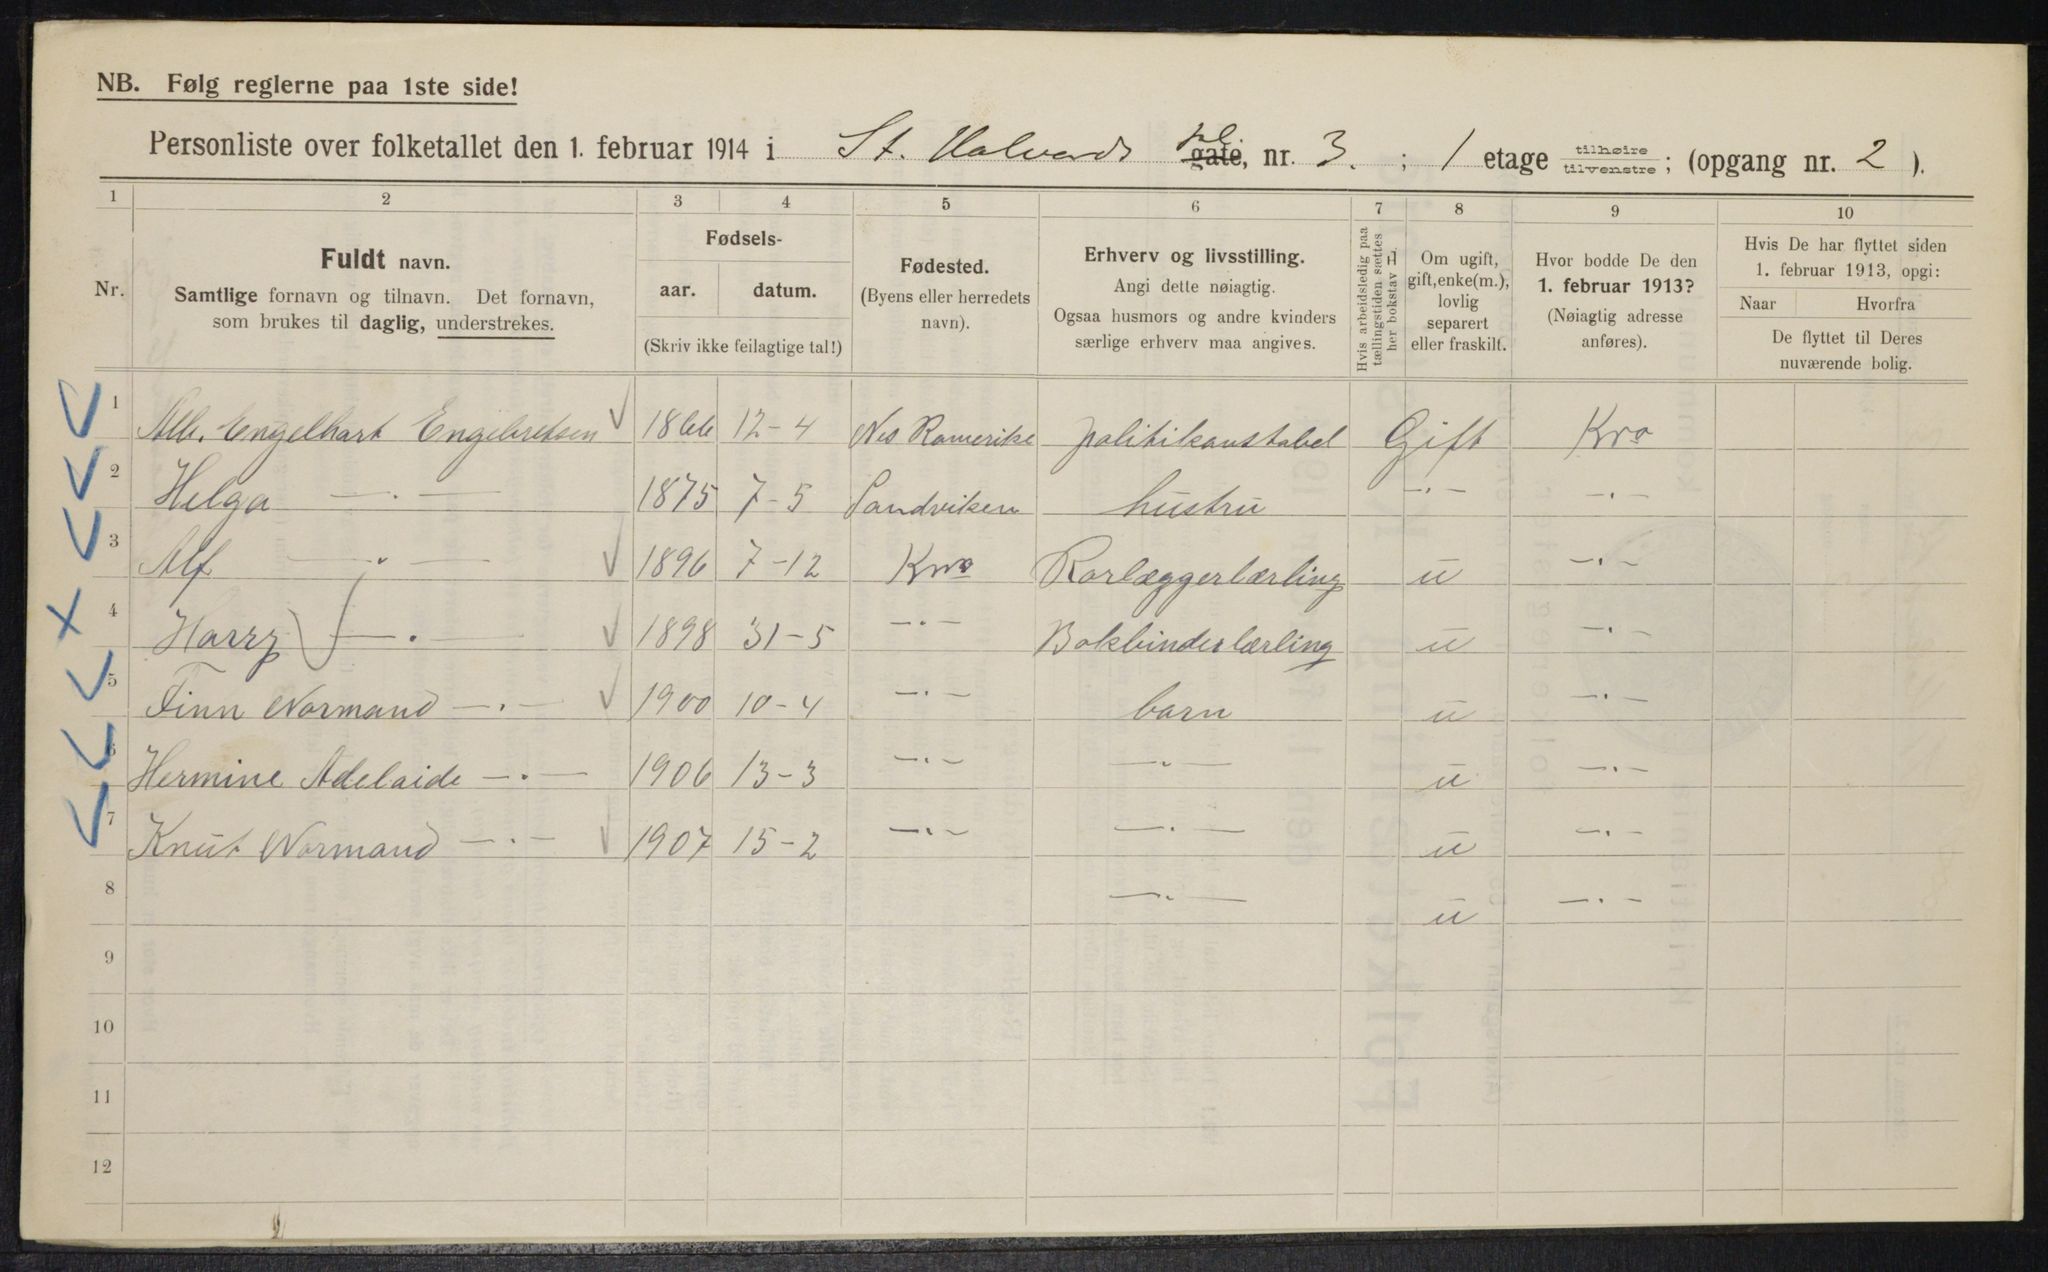 NB. Følg reglerne paa 1ste side!
Personliste over folketallet den 1. februar 1914 i St. Halvards pl. gate, nr. 3. ; 1 etage tilhøire tilvenstre ; (opgang nr. 2 ).
1 2 3 4 5 6 7 8 9 10
Nr.
Fuldt navn.
Samtlige fornavn og tilnavn. Det fornavn,
som brukes til daglig, understrekes.
Fødsels-
aar. datum.
(Skriv ikke feilagtige tal!)
Fødested.
(Byens eller herredets
navn).
Erhverv og livsstilling.
Angi dette nøiagtig.
Ogsaa husmors og andre kvinders
særlige erhverv maa angives.
Hvis arbeidsledig paa
tællingstiden sættes
her bokstav L
Om ugift,
gift, enke(m.),
lovlig
separert
eller fraskilt.
Hvor bodde De den
1. februar 1913?
(Nøiagtig adresse
anføres).
Hvis De har flyttet siden
1. februar 1913, opgi:
Naar Hvorfra
De flyttet til Deres
nuværende bolig.
1 Engelhart Engebretsen 1866 12-4 Nes Romerike politikonstabel Gift Kra
2 Helga —.— 1875 7-5 Sandviken hustru —.— —.—
3 Alf —.— 1896 7-12 Kra Rorlæggerlærling u —.—
4 Harry —.— 1898 31-5 —.— Bokbinderlærling u —.—
5 Finn Normand —.— 1900 10-4 —.— barn u —.—
6 Hermine Adelaide —.— 1906 13-3 —.— —.— u —.—
7 Knut Normand —.— 1907 15-2 —.— —.— u —.—
8 —.— u —.—
9
10
11
12